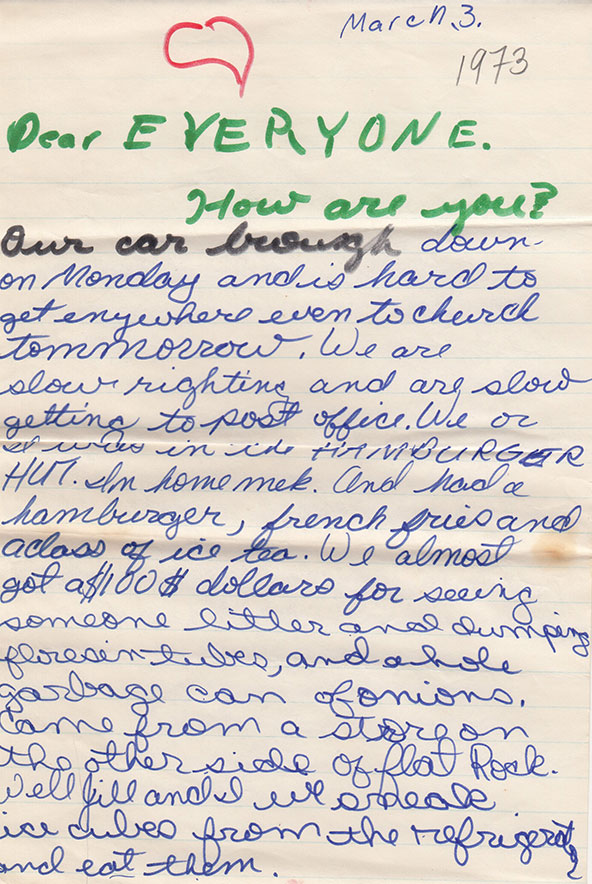 March.3.
1973
Dear EVERYONE.
How are you?
Our car brough down
on Monday and is hard to
get enywhere even to church
tommmorrow. We are
slow righting and are slow
getting to post office. We or
I was in the HAMBURGER
HUT. In homemek. And had a
hamburger, french fries and
a class of ice tea. We almost
got a $100$ dollars for seeing
someone litter and dumping
floresin tubes, and a hole
garbage can of onions.
Came from a store on
the other side of flat Rock.
Well Jill and I we sneak
ice cubes from the refrigerat
and eat them.